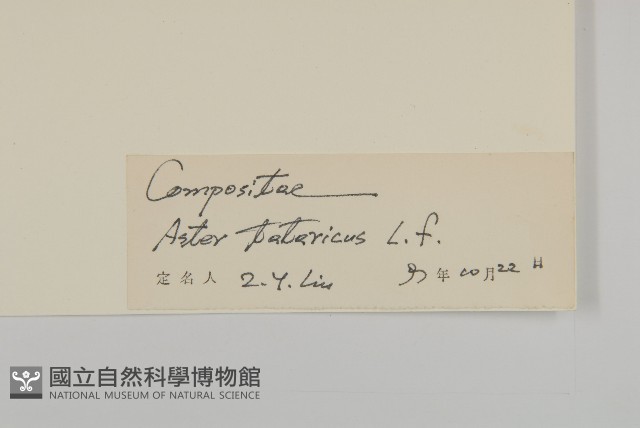 Compositae
Aster tataricus L.f.
定名人 Z.Y. Liu 年 10月22日
國立自然科學博物館
NATIONAL MUSEUM OF NATURAL SCIENCE